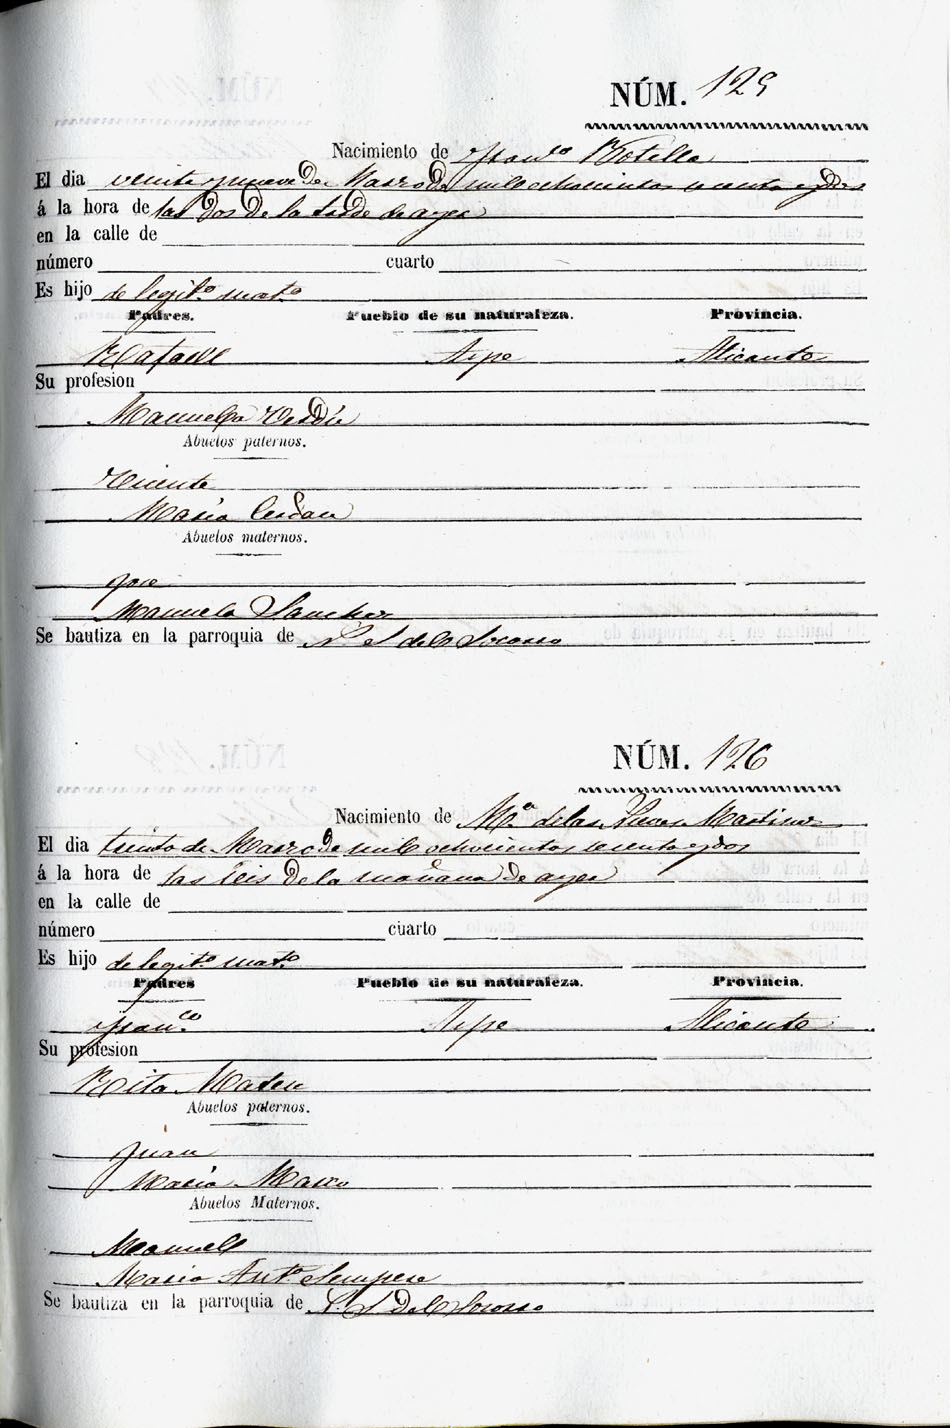 NÚM. 125
Nacimiento de Fran.co Botella
El dia veinte y nueve de Marzo de mil ochocientos sesenta y dos
á la hora de las dos de la tarde de ayer
en la calle de
número cuarto
Es hijo de legit.o mat.o
Padres. Pueblo de su naturaleza. Provincia.
Rafael Aspe Alicante
Su profesion
Manuela Verdú
Abuelos paternos.
Vicente
Maria Cerdan
Abuelos maternos.
Jose
Manuela Sanchez
Se bautiza en la parroquia de N. S. del Socorro
NÚM. 126
Nacimiento de M.a de las Nieves Martinez
El dia treinta de Marzo de mil ochocientos sesenta y dos
á la hora de las seis de la mañana de ayer
en la calle de
número cuarto
Es hijo de legit.o mat.o
Padres Pueblo de su naturaleza. Provincia.
Fran.co Aspe Alicante
Su profesion
Rita Mateu
Abuelos paternos.
Juan
Maria Marco
Abuelos Maternos.
Manuel
Maria Ant.a Sempere
Se bautiza en la parroquia de N. S. del Socorro